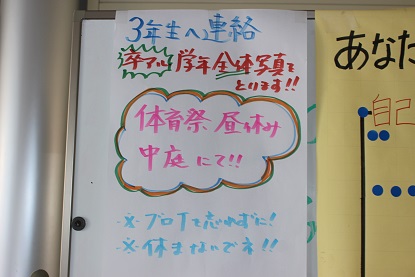 3年生へ連絡
卒アル 学年全体写真を
とります!!
体育祭 昼休み
中庭にて!!
※ブロTを忘れずに!
※休まないでネ!!
あなた
自己